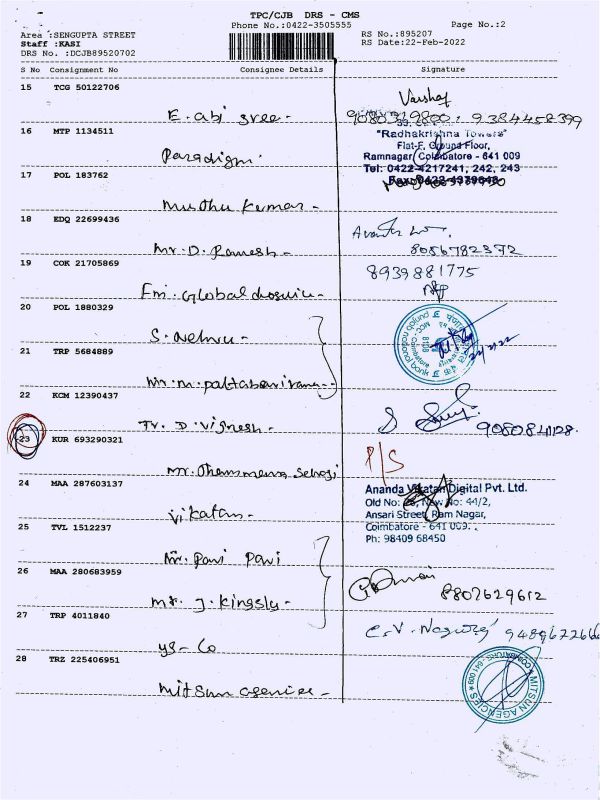 TPC/CJB DRS - CMS
Phone No.:0422-3505555
Page No.:2
Area :SENGUPTA STREET
Staff :KASI
DRS No. :DCJB89520702
RS No.:895207
RS Date:22-Feb-2022
S No Consignment No Consignee Details Signature
15 TCG 50122706
E. abi sree -
9080329800, 9384458399
16 MTP 1134511
Paradigm.
"Radhakrishna Towers"
Flat-F, Ground Floor,
Ramnagar, Coimbatore - 641 009
Tel: 0422-4217241, 242, 243
17 POL 183762
Muthu Kumar -
18 EDQ 22699436
Mr. D. Ramesh -
8056782372
19 COK 21705869
Fmi. Global
8939881775
20 POL 1880329
S. Nehru -
punjab national bank
Coimbatore
21 TRP 5684889
Mr. M.
22 KCM 12390437
Tr. D. Vignesh -
23 KUR 693290321
Mr.
P/S
24 MAA 287603137
Vikatan -
Ananda Vikatan Digital Pvt. Ltd.
Old No: New No: 44/2,
Ansari Street, Ram Nagar,
Coimbatore - 641 009.
Ph: 98409 68450
25 TVL 1512237
Mr. Pavi Pavi
26 MAA 280683959
Mr. J. Kingsly -
8807629612
27 TRP 4011840
ys - Co
C.V. Nagaraj
28 TRZ 225406951
Mitsun agencies -
MITSUN AGENCIES
COIMBATORE - 641 009